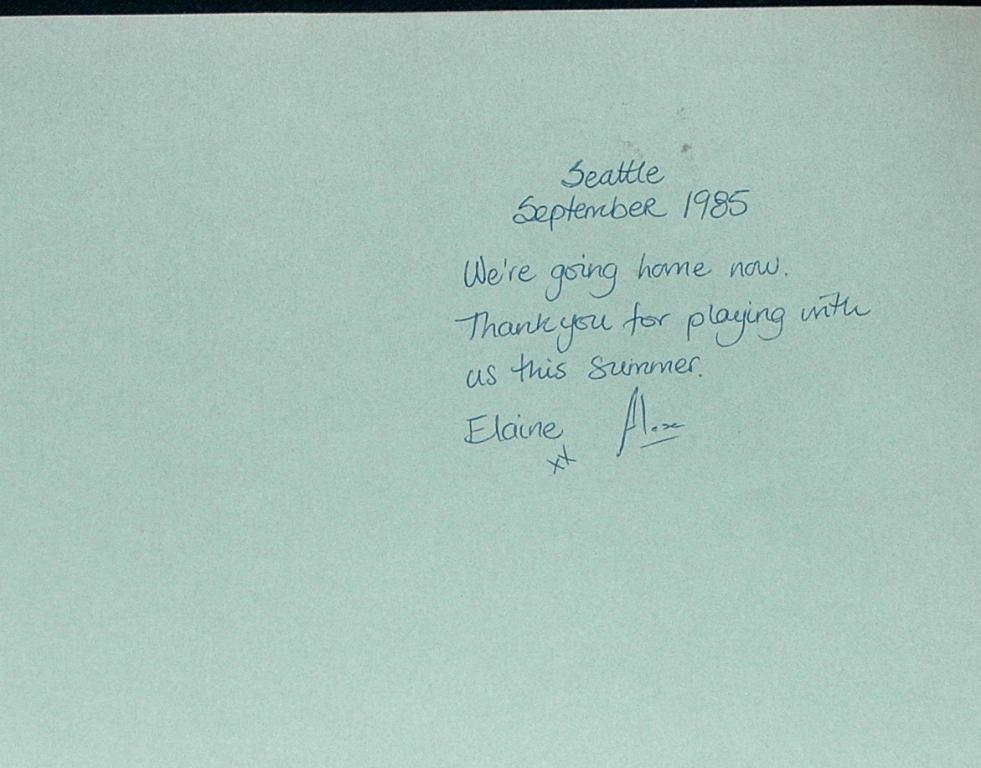 Seattle
September 1985
We're going home now.
Thank you for playing with
us this summer.
Elaine Alex
xx